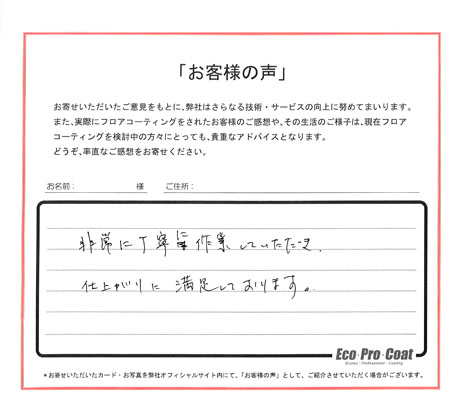 「お客様の声」
お寄せいただいたご意見をもとに、弊社はさらなる技術・サービスの向上に努めてまいります。
また、実際にフロアコーティングをされたお客様のご感想や、その生活のご様子は、現在フロア
コーティングを検討中の方々にとっても、貴重なアドバイスとなります。
どうぞ、率直なご感想をお寄せください。
お名前： 様 ご住所：
非常に丁寧に作業していただき、
仕上がりに満足しております。
Eco・Pro・Coat
Ecology・Professional・Coating
＊お寄せいただいたカード・お写真を弊社オフィシャルサイト内にて、「お客様の声」として、ご紹介させていただく場合がございます。